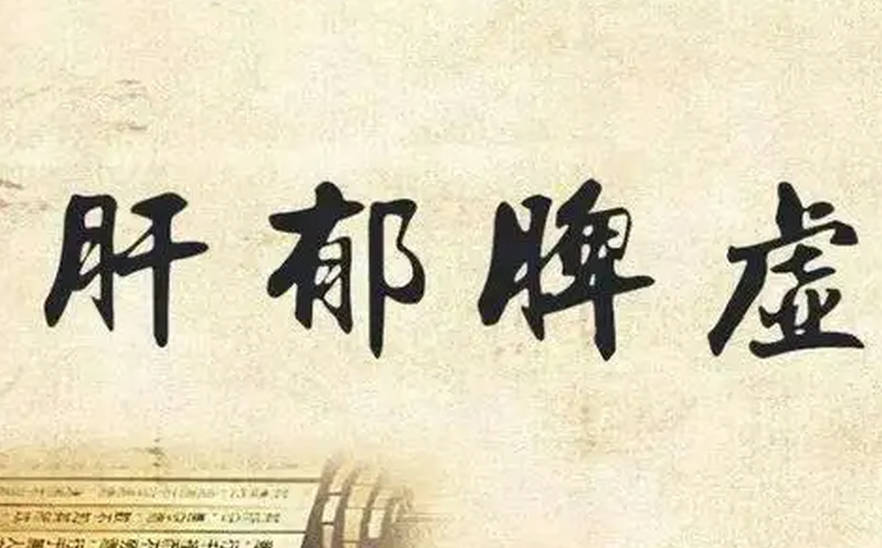 肝郁脾虚